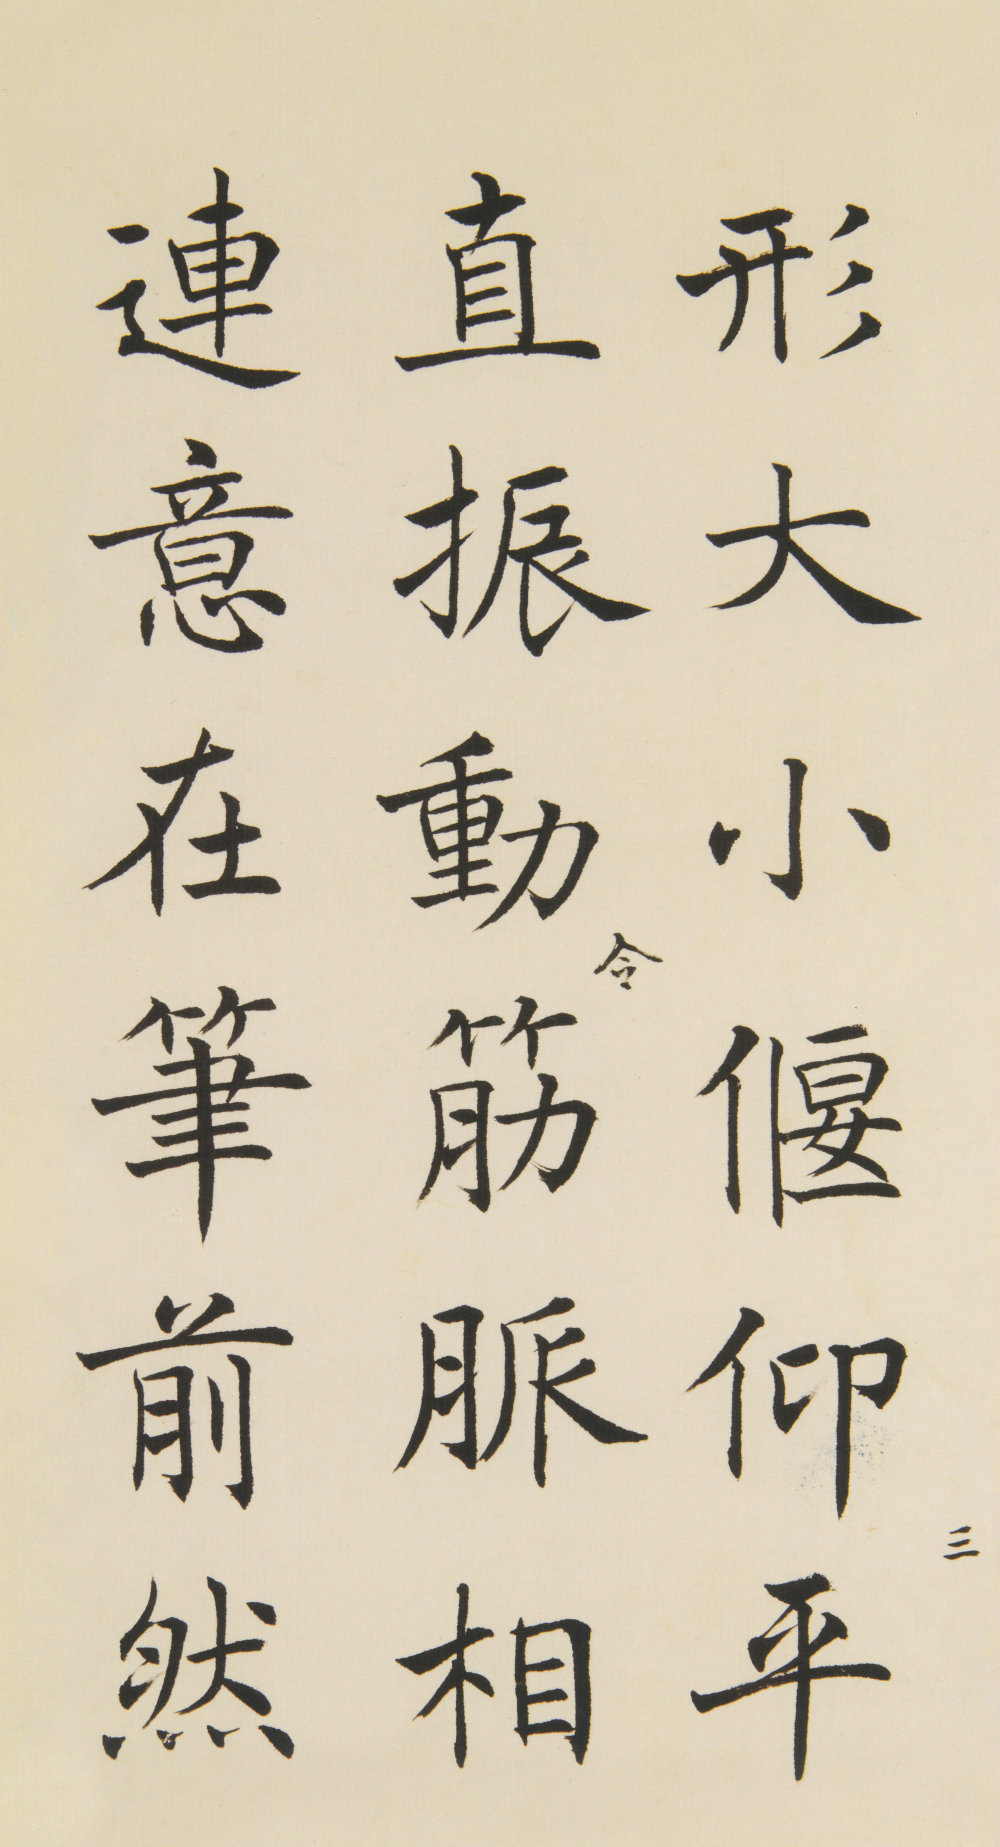 形大小偃仰平
三
直振動筋脈相
令
連意在筆前然